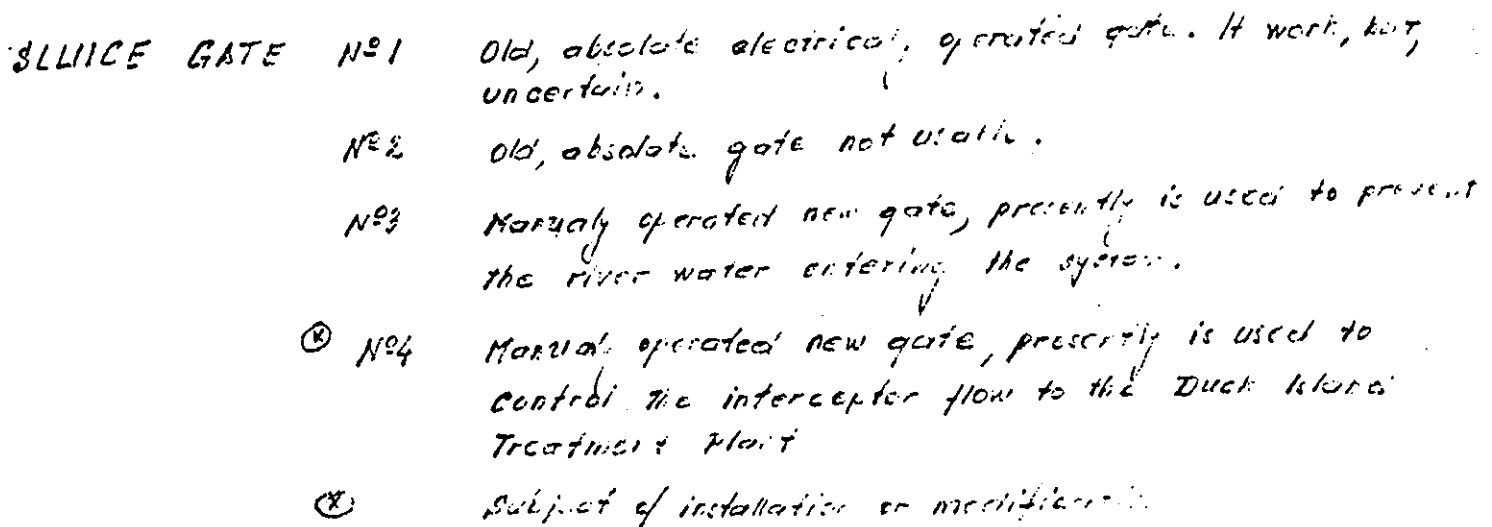 SLUICE GATE Nº1 Old, absolate electrical, operated gate. It work, but,
uncertain.
Nº2 Old, absolate gate not usable.
Nº3 Manualy operated new gate, presently is used to prevent
the river water entering the system.
ⓧ Nº4 Manualy operated new gate, presently is used to
control the interceptor flow to the Duck Island
Treatment Plant
ⓧ Subject of installation or modification